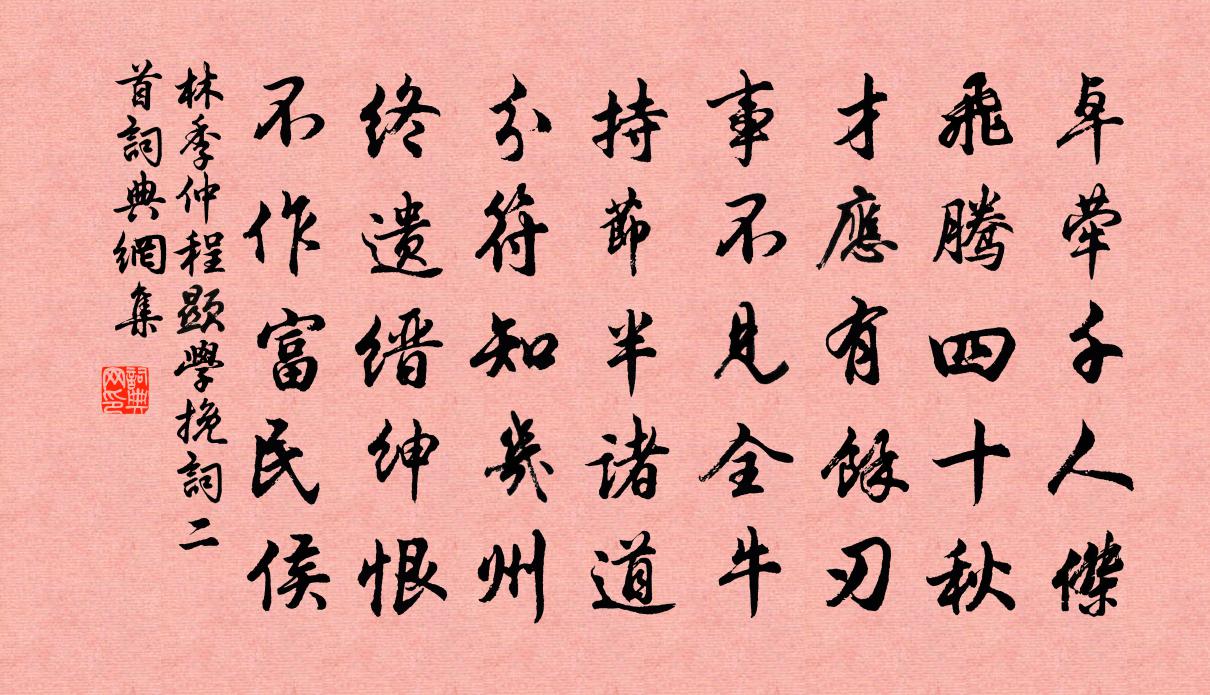 卓犖千人傑
飛騰四十秋
才應有餘刃
事不見全牛
持節半諸道
分符知幾州
終遺縉紳恨
不作富民侯
林季仲程顯學挽詞二
首詞典網集
詞典网印